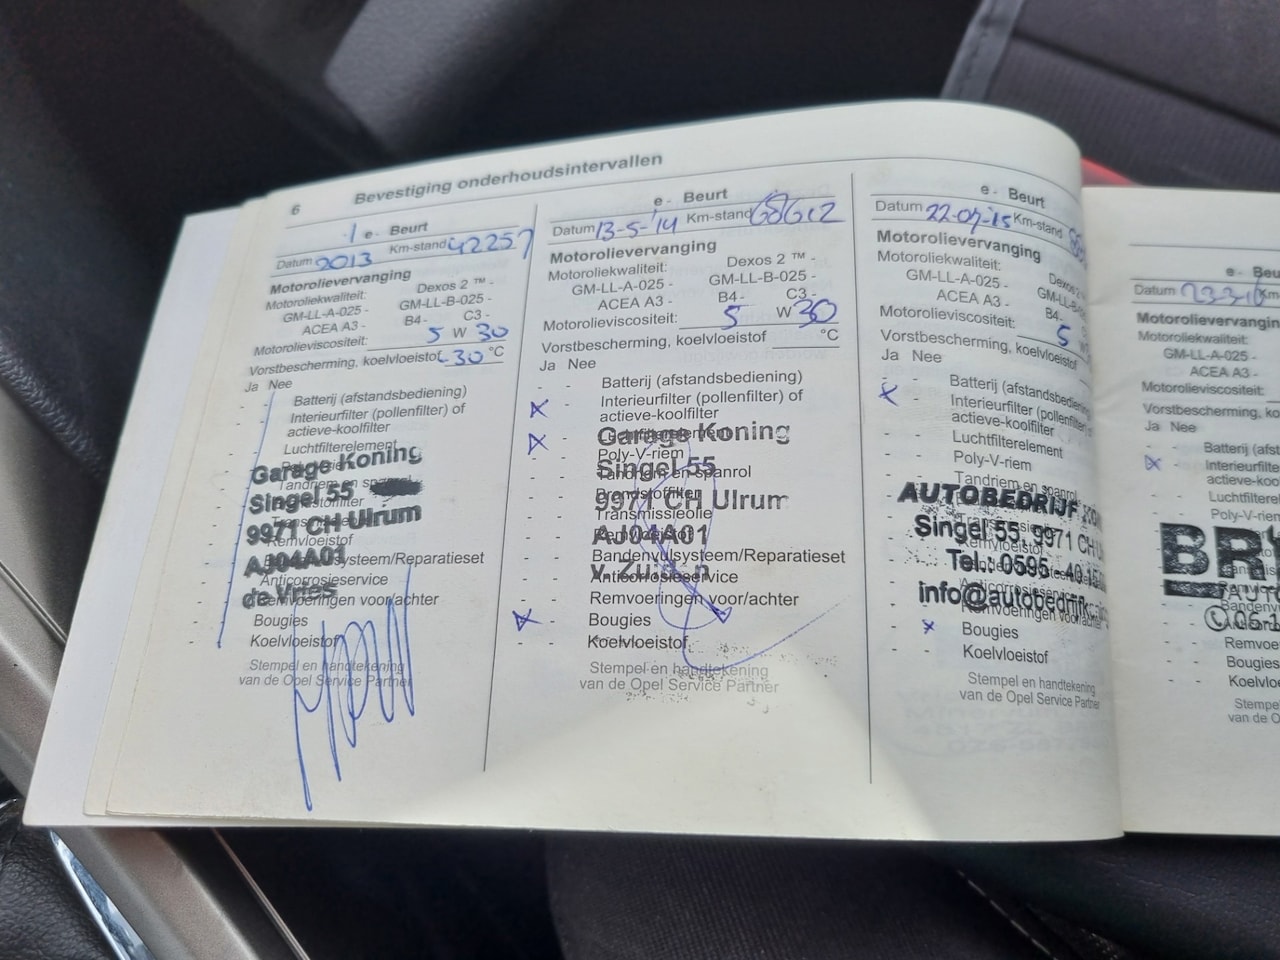 6 Bevestiging onderhoudsintervallen
1 e - Beurt
Datum 2013 Km-stand 42257
Motorolievervanging
Motoroliekwaliteit: Dexos 2 ™ -
GM-LL-A-025 - GM-LL-B-025 -
ACEA A3 - B4 - C3 -
Motorolieviscositeit: 5 W 30
Vorstbescherming, koelvloeistof -30 °C
Ja Nee
- - Batterij (afstandsbediening)
- - Interieurfilter (pollenfilter) of
actieve-koolfilter
Luchtfilterelement
Garage Koning
Singel 55
9971 CH Ulrum
AJ04A01
de Vries
Remvloeistof
Bandenvulsysteem/Reparatieset
Anticorrosieservice
Remvoeringen voor/achter
Bougies
Koelvloeistof
Stempel en handtekening
van de Opel Service Partner
e - Beurt
Datum 13-5-'14 Km-stand 68612
Motorolievervanging
Motoroliekwaliteit: Dexos 2 ™ -
GM-LL-A-025 - GM-LL-B-025 -
ACEA A3 - B4 - C3 -
Motorolieviscositeit: 5 W 30
Vorstbescherming, koelvloeistof °C
Ja Nee
- - Batterij (afstandsbediening)
x - Interieurfilter (pollenfilter) of
actieve-koolfilter
x -
Poly-V-riem
Tandriem en spanrol
Brandstoffilter
Transmissieolie
Garage Koning
Singel 55
9971 CH Ulrum
AJ04A01
Bandenvulsysteem/Reparatieset
Anticorrosieservice
- - Remvoeringen voor/achter
x - Bougies
- - Koelvloeistof
Stempel en handtekening
van de Opel Service Partner
e - Beurt
Datum 22-07-15 Km-stand
Motorolievervanging
Motoroliekwaliteit: Dexos 2
GM-LL-A-025 - GM-LL-B-
ACEA A3 - B4 -
Motorolieviscositeit: 5 W
Vorstbescherming, koelvloeistof
Ja Nee
- - Batterij (afstandsbediening
x - Interieurfilter (pollenfilter
actieve-koolfilter
- - Luchtfilterelement
- - Poly-V-riem
Tandriem en spanrol
AUTOBEDRIJF
Singel 55, 9971 CH
Tel.: 0595 - 40
Remvoeringen voor
- x Bougies
- - Koelvloeistof
Stempel en handtekening
van de Opel Service Partner
e - Beu
Datum
Motorolievervangin
Motoroliekwaliteit:
GM-LL-A-025 -
ACEA A3 -
Motorolieviscositeit:
Vorstbescherming, ko
Ja Nee
- - Batterij (afst
x - Interieurfilter
actieve-kool
- - Luchtfiltere
- - Poly-V-rie
BR
Remvoe
- - Bougies
- - Koelvlo
Stempe
van de O